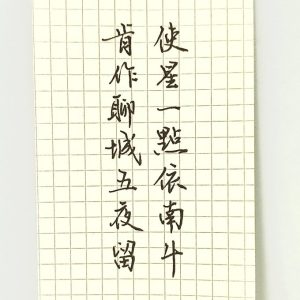 使星一點依南斗
肯作聊城五夜留